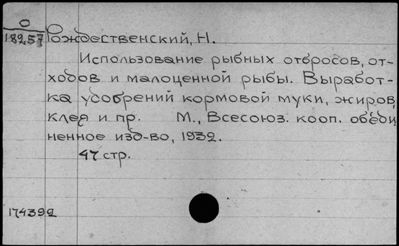 О
18257
Рождественский, Н.
Использование рыбных отбросов, от-
ходов и малоценной рыбы. Выработ-
ка удобрений кормовой муки, жиров,
клея и пр. М., Всесоюз. кооп. объеди
ненное изд-во, 1932.
47 стр.
174392